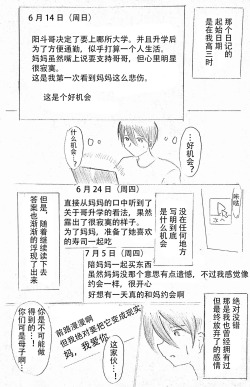 那个日记的
起始日期
是在我高
三时
6 月 14 日（周日）
阳斗哥决定了要上哪所大学，并且升学后
为了方便通勤，似乎打算一个人生活。
妈妈虽然嘴上说要支持哥哥，但心里明显
很寂寞。
这是我第一次看到妈妈这么悲伤。
这是个好机会
…好机会？
什么机会？
6 月 24 日（周四）
直接从妈妈的口中听到了
关于哥升学的看法，果然
露出了很寂寞的样子。
为了妈妈，准备了她喜欢
的寿司一起吃
没在任何地方
写明到底
是什么机会
咔哒
但是，随着继续读下去
答案也渐渐的浮现了出来
7 月 5 日（周四）
陪妈妈一起买东西
虽然妈妈没那个意思有点遗憾，不过我感觉像
约会一样。很开心
好想有一天真的和妈妈约会啊
绝对没错，
那是我也曾经拥有过
但最终放弃了的感情
前路漫漫啊
但我绝对要把它变成现实
妈，我爱你
这家伙…！
你是不可能做
得到的…！
你们可是母子啊…！